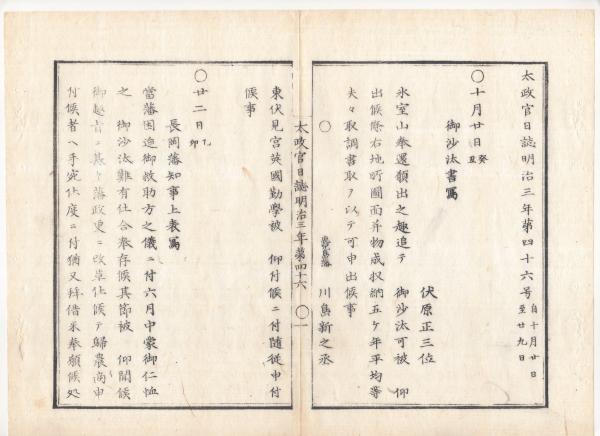 太政官日誌明治三年第四十六号 自十月廿日 至廿九日
〇十月廿日 癸丑
御沙汰書写
伏原正三位
氷室山奉還願出之趣追テ 御沙汰可被 仰
出候條右地所図面并物成収納五ヶ年平均等
夫々取調書取ヲ以テ可申出候事
〇 川島新之丞
東伏見宮英國勤學被 仰付候ニ付随従申付
候事
太政官日誌明治三年第四十六 〇一
〇廿二日 乙卯
長岡藩知事上表写
當藩困迫御救助方之儀ニ付六月中蒙御仁恤
之 御沙汰難有仕合奉存候其節被 仰聞候
御趣旨ニ基キ藩政更ニ改革仕候テ歸農商申
付候者ヘ手宛仕度ニ付猶又拝借米奉願候処